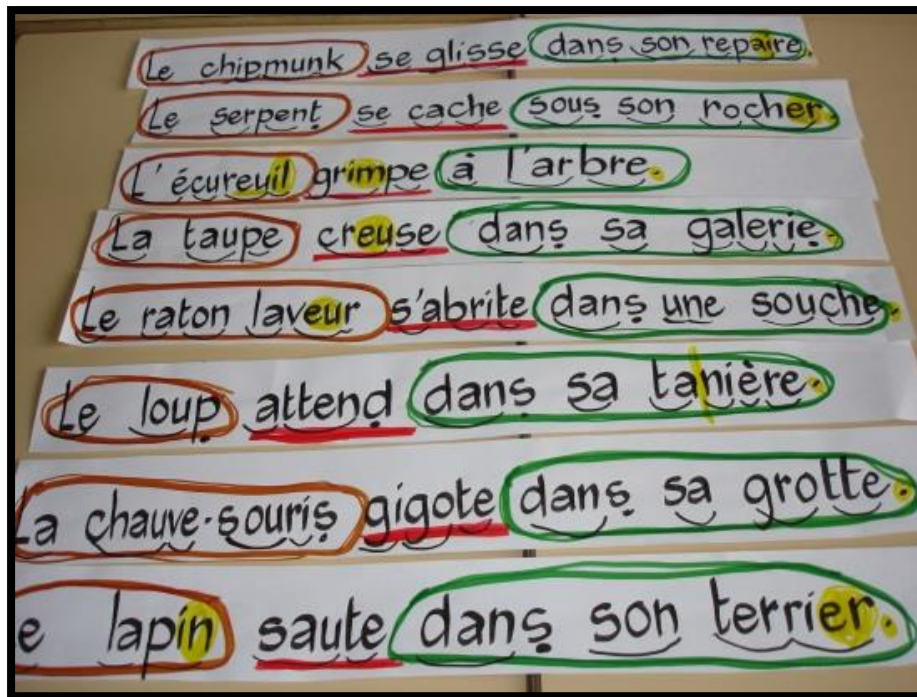 Le chipmunk se glisse dans son repaire.
Le serpent se cache sous son rocher.
L'écureuil grimpe à l'arbre.
La taupe creuse dans sa galerie.
Le raton laveur s'abrite dans une souche.
Le loup attend dans sa tanière.
La chauve-souris gigote dans sa grotte.
e lapin saute dans son terrier.